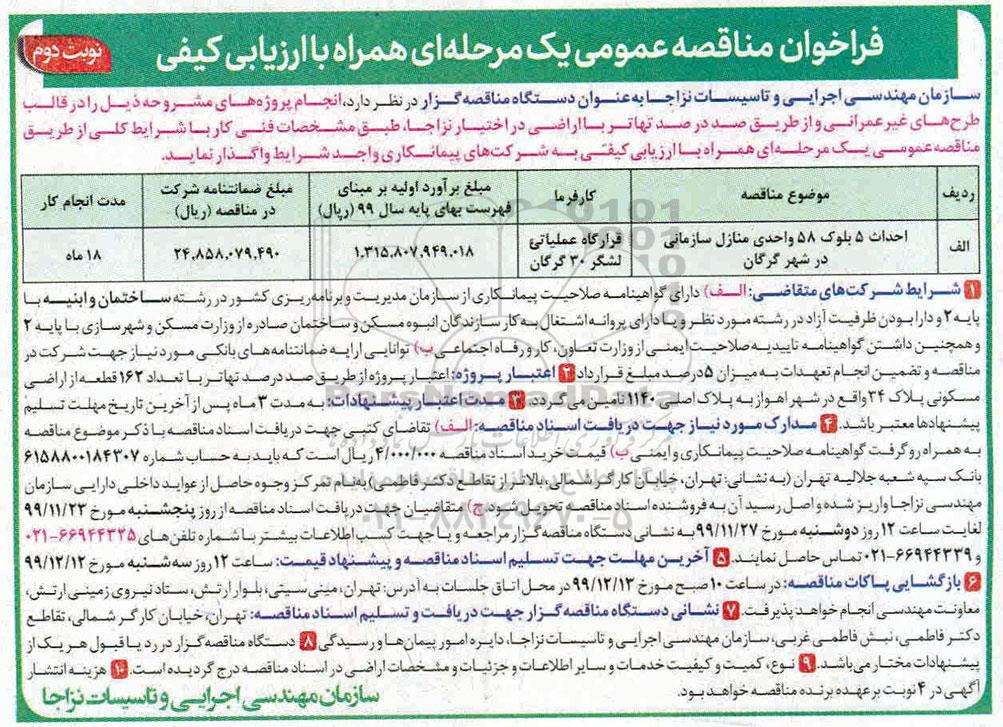 فراخوان مناقصه عمومی یک مرحله‌ای همراه با ارزیابی کیفی
نوبت دوم
سازمان مهندسی اجرایی و تاسیسات نزاجا به عنوان دستگاه مناقصه گزار در نظر دارد، انجام پروژه‌های مشروحه ذیل را در قالب
طرح‌های غیر عمرانی و از طریق صد در صد تهاتر با اراضی در اختیار نزاجا، طبق مشخصات فنی کار با شرایط کلی از طریق
مناقصه عمومی یک مرحله‌ای همراه با ارزیابی کیفی به شرکت‌های پیمانکاری واجد شرایط واگذار نماید.
ردیف موضوع مناقصه کارفرما مبلغ برآورد اولیه بر مبنای فهرست بهای پایه سال ۹۹ (ریال) مبلغ ضمانتنامه شرکت در مناقصه (ریال) مدت انجام کار
الف احداث ۵ بلوک ۵۸ واحدی منازل سازمانی در شهر گرگان قرارگاه عملیاتی لشگر ۳۰ گرگان ۱.۳۱۵.۸۰۷.۹۴۹.۰۱۸ ۲۴.۸۵۸.۰۷۹.۴۹۰ ۱۸ ماه
۱ شرایط شرکت‌های متقاضی: الف) دارای گواهینامه صلاحیت پیمانکاری از سازمان مدیریت و برنامه‌ریزی کشور در رشته ساختمان و ابنیه با
پایه ۲ و دارا بودن ظرفیت آزاد در رشته مورد نظر و یا دارای پروانه اشتغال به کار سازندگان انبوه مسکن و ساختمان صادره از وزارت مسکن و شهرسازی با پایه ۲
و همچنین داشتن گواهینامه تاییدیه صلاحیت ایمنی از وزارت تعاون، کار و رفاه اجتماعی ب) توانایی ارایه ضمانتنامه‌های بانکی مورد نیاز جهت شرکت در
مناقصه و تضمین انجام تعهدات به میزان ۵ درصد مبلغ قرارداد ۲ اعتبار پروژه: اعتبار پروژه از طریق صد درصد تهاتر با تعداد ۱۶۲ قطعه از اراضی
مسکونی پلاک ۲۴ واقع در شهر اهواز به پلاک اصلی ۱۱۴۰ تامین می گردد. ۳ مدت اعتبار پیشنهادات: به مدت ۳ ماه پس از آخرین تاریخ مهلت تسلیم
پیشنهادها معتبر باشد. ۴ مدارک مورد نیاز جهت دریافت اسناد مناقصه: الف) تقاضای کتبی جهت دریافت اسناد مناقصه با ذکر موضوع مناقصه
به همراه رو گرفت گواهینامه صلاحیت پیمانکاری و ایمنی ب) قیمت خرید اسناد مناقصه ۴/۰۰۰/۰۰۰ ریال است که باید به حساب شماره ۶۱۵۸۸۰۰۱۸۴۳۰۷
بانک سپه شعبه جلالیه تهران (به نشانی: تهران، خیابان کارگر شمالی، بالاتر از تقاطع دکتر فاطمی) به نام تمرکز وجوه حاصل از عواید داخلی دارایی سازمان
مهندسی نزاجا واریز شده و اصل رسید آن به فروشنده اسناد مناقصه تحویل شود. ج) متقاضیان جهت دریافت اسناد مناقصه از روز پنجشنبه مورخ ۹۹/۱۱/۲۳
لغایت ساعت ۱۲ روز دوشنبه مورخ ۹۹/۱۱/۲۷ به نشانی دستگاه مناقصه گزار مراجعه و یا جهت کسب اطلاعات بیشتر با شماره تلفن‌های ۶۶۹۴۴۳۳۵-۰۲۱
و ۶۶۹۴۴۳۳۹-۰۲۱ تماس حاصل نمایند. ۵ آخرین مهلت جهت تسلیم اسناد مناقصه و پیشنهاد قیمت: ساعت ۱۲ روز سه شنبه مورخ ۹۹/۱۲/۱۲
۶ بازگشایی پاکات مناقصه: در ساعت ۱۰ صبح مورخ ۹۹/۱۲/۱۳ در محل اتاق جلسات به آدرس: تهران، مینی سیتی، بلوار ارتش، ستاد نیروی زمینی ارتش،
معاونت مهندسی انجام خواهد پذیرفت. ۷ نشانی دستگاه مناقصه گزار جهت دریافت و تسلیم اسناد مناقصه: تهران، خیابان کارگر شمالی، تقاطع
دکتر فاطمی، نبش فاطمی غربی، سازمان مهندسی اجرایی و تاسیسات نزاجا، دایره امور پیمان‌ها و رسیدگی ۸ دستگاه مناقصه گزار در رد یا قبول هر یک از
پیشنهادات مختار می‌باشد. ۹ نوع، کمیت و کیفیت خدمات و سایر اطلاعات و جزئیات و مشخصات اراضی در اسناد مناقصه درج گردیده است. ۱۰ هزینه انتشار
آگهی در ۴ نوبت بر عهده برنده مناقصه خواهد بود.
سازمان مهندسی اجرایی و تاسیسات نزاجا
۰۲۱-۸۸۳۴۹۶۷۰-۵